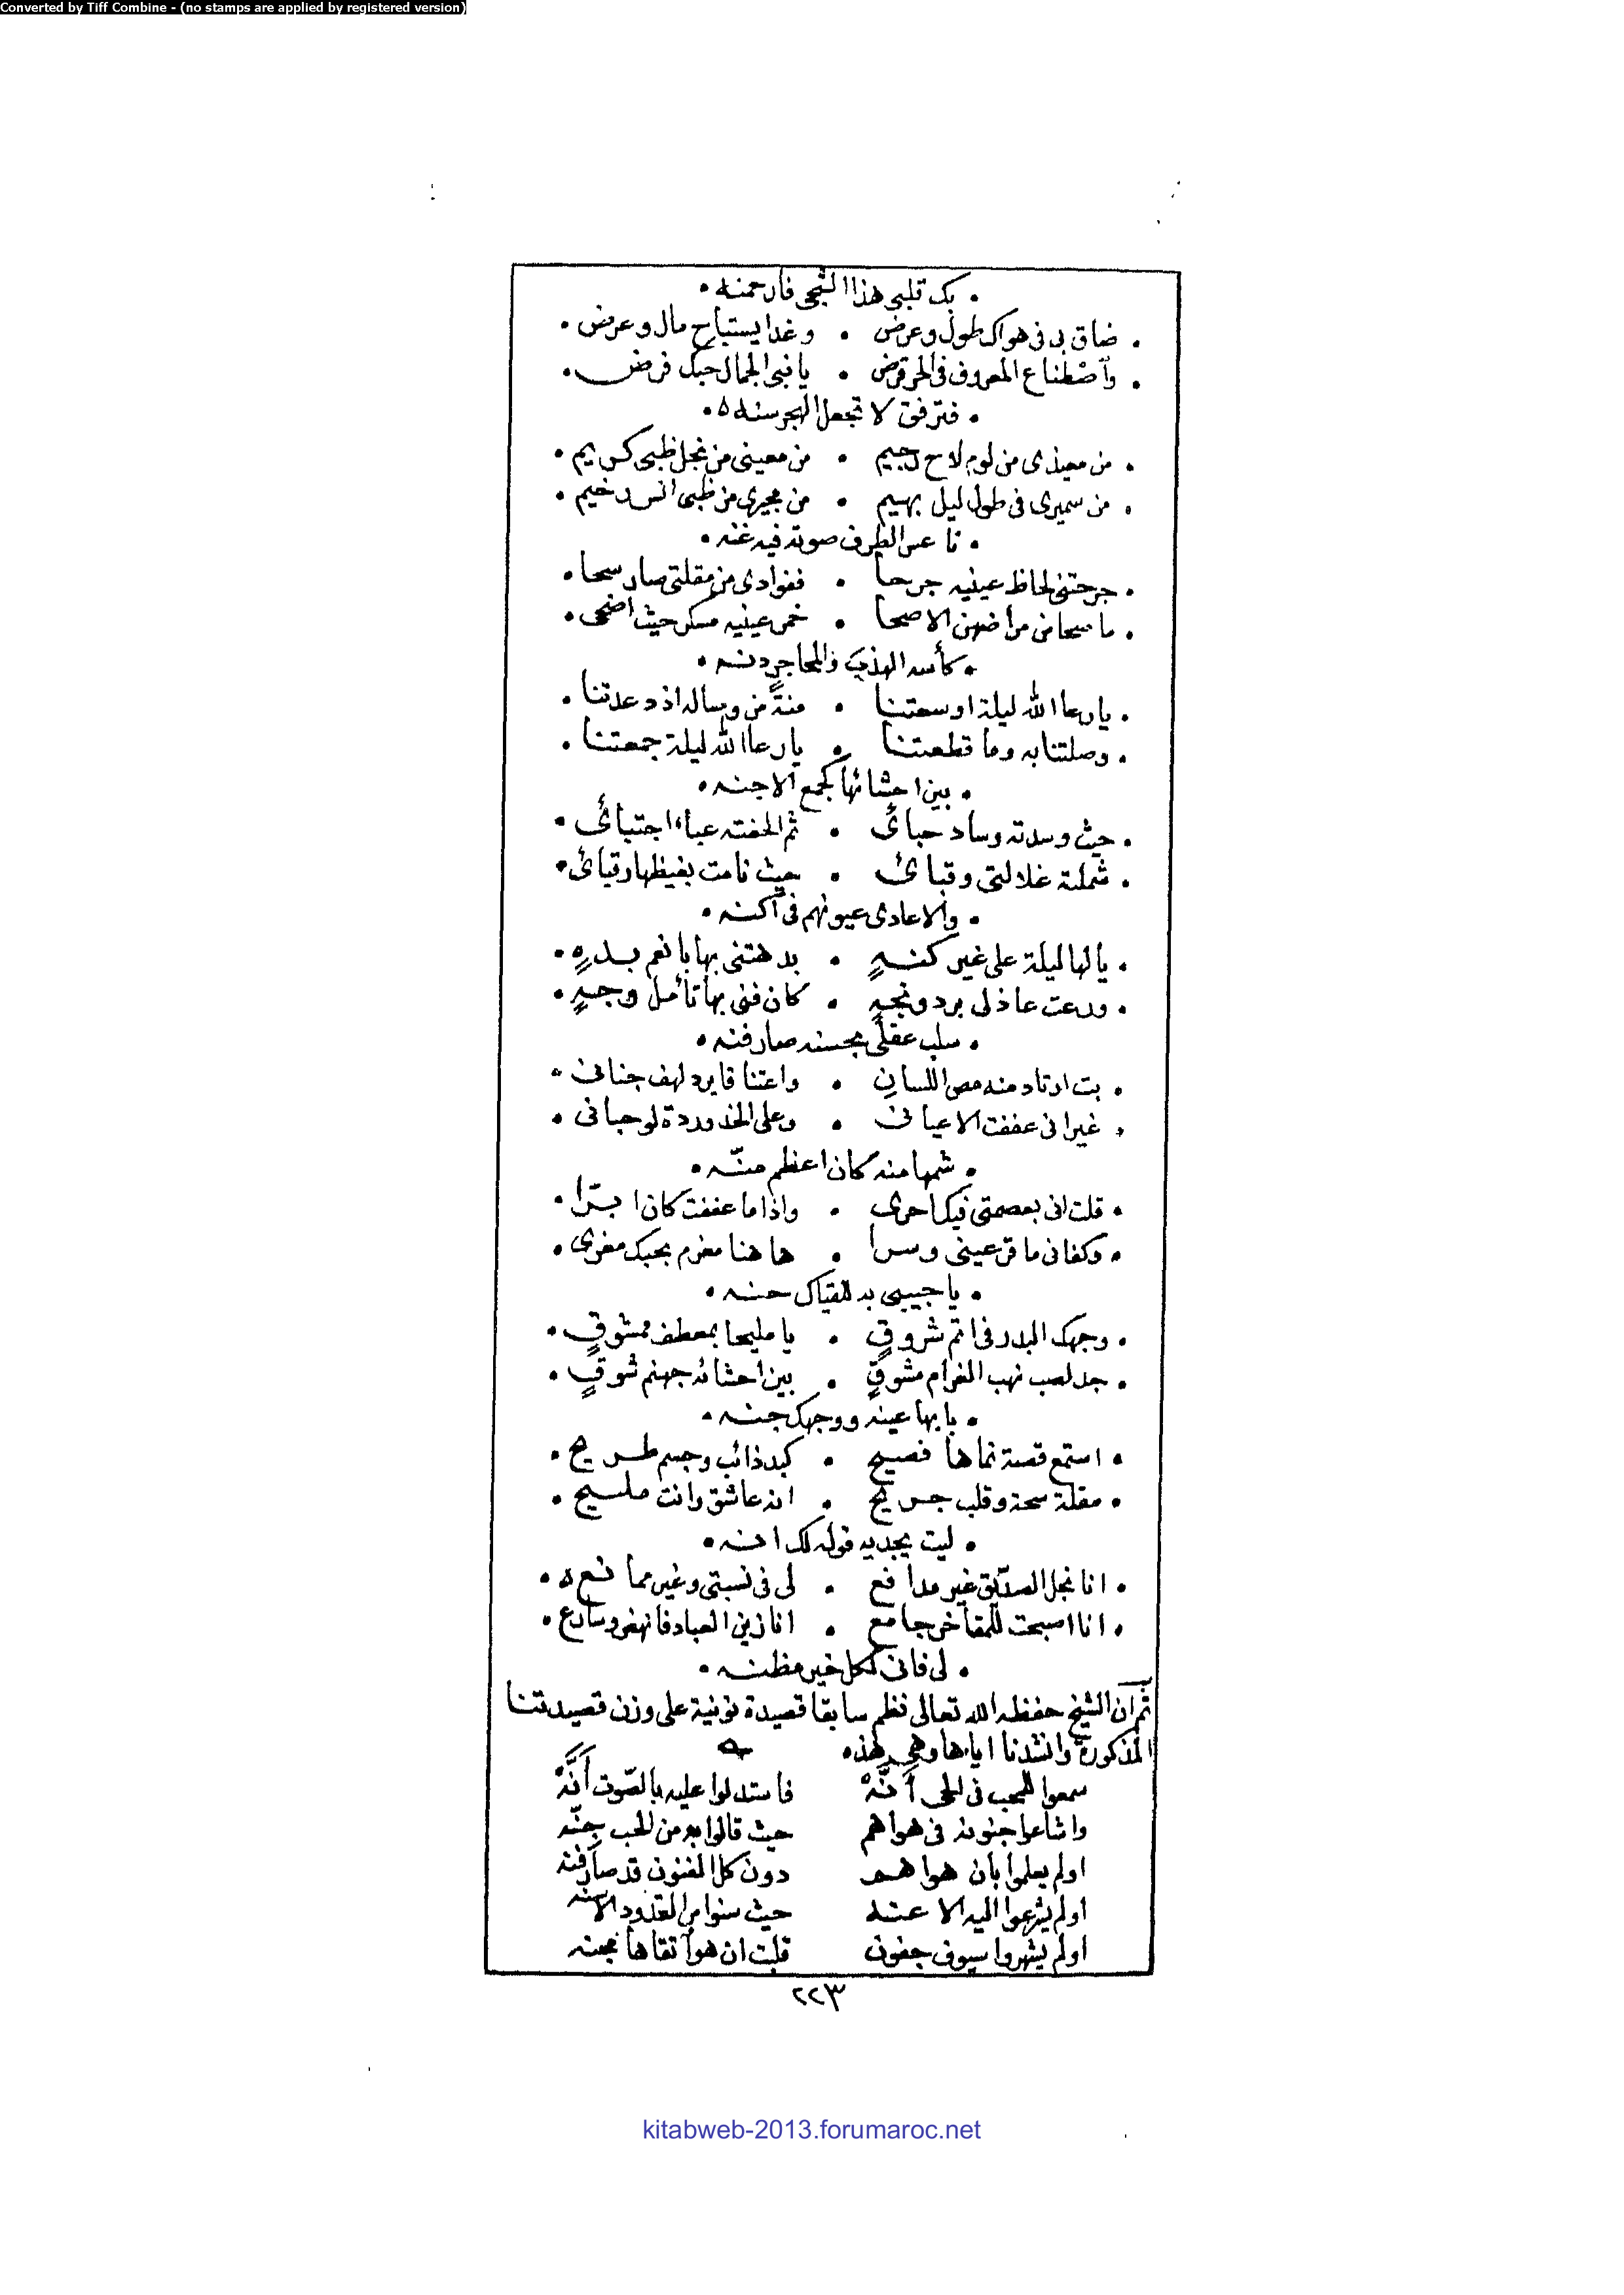 Converted by Tiff Combine - (no stamps are applied by registered version)
• بك قلبي هذا الشجى فارحمنه •
• ضاق بى فى هواك طول وعرض • وغدا يستباح مال وعرض •
• واصطناع المعروف فى الحر قرض • يا نبى الجمال حبك فرض •
• فترفق لا تجعل الهجر سنه •
• من معيذى من لوم لاح رجيم • من معينى من نجل ظبى كريم •
• من سميرى فى طول ليل بهيم • من مجيرى من ظبى انس رخيم •
• ناعس الطرف صوته فيه غنه •
• جرحتنى لحاظ عينيه جرحا • ففوادى من مقلتى صار سحا •
• ما صحا من مراضهن الا صحا • خمر عينيه مسكر حيث اضحى •
• كأسه الهدب والمحاجر دنه •
• يا رعا الله ليلة اوسعتنا • منةً من وصاله اذ دعتنا •
• وصلتنا به وما قطعتنا • يا رعا الله ليلة جمعتنا •
• بين احشائها كجمع الاجنه •
• حيث وسدته وساد حبائ • ثم الحفته عباء اجتبائ •
• شملته غلالتى وقبائ • حيث نامت بغيظها رقبائ •
• والاعادى عيونهم فى اكنه •
• يا لها ليلة على غير كنهٍ • بدهتنى بها بانعم بدهٍ •
• ورعت عاذلى برد ونجهٍ • كان فنى بها تأمل وجهٍ •
• سلب عقلى بحسنه صار فنه •
• بت ارتاد منه مص اللسانِ • واعتناقا يرد لهف جنانى •
• غير انى عففت الا عيانى • وعلى الخد وردة لو حبانى •
• شمها منه كان اعظم منّه •
• قلت انى بعصمتى فيك احرى • واذا ما عففت كان ابرّا •
• وكفانى ما قر عينى وسرا • ها هنا مغرم بحبك مغرى •
• يا حبيبى به للقياك حنه •
• وجهك البدر فى اتم شروقٍ • يا مليحا بمعطف ممشوقٍ •
• جد لصب نهب الغرام مشوقٍ • بين احشائه جهنم شوقٍ •
• يا بها عينه ووجهك جنه •
• استمع قصة نماها فصيح • كبد ذائب وجسم طريح •
• مقلة سحة وقلب جريح • انه عاشق وانت مليح •
• ليت يجديه قوله لك انه •
• انا نجل الصدّيق غير مدافع • لى فى نسبتى وغير ممانع •
• انا اصبحت للمفاخر جامع • انا زين العباد فانهض وسارع •
• لى فانى لكل خير مظنه •
ثم ان الشيخ حفظه الله تعالى نظم سابقا قصيدة نونية على وزن قصيدتنا
المذكورة وانشدنا اياها وهى هذه
سمعوا للمحب فى الحى أَنَّهْ فاستدلوا عليه بالصّوت أَنَّهْ
واشاعوا جنونه فى هواهم حيث قالوا به من الحب جِنّه
اولم يعلموا بأن هواهم دون كل الفنون قد صار فنه
اولم يشرعوا اليه الاعنه حيث سنوا من القدود الاسنه
اولم يشهروا سيوف جفون قلت ان هو اتقاها بجنه
٢٢٣
kitabweb-2013.forumaroc.net